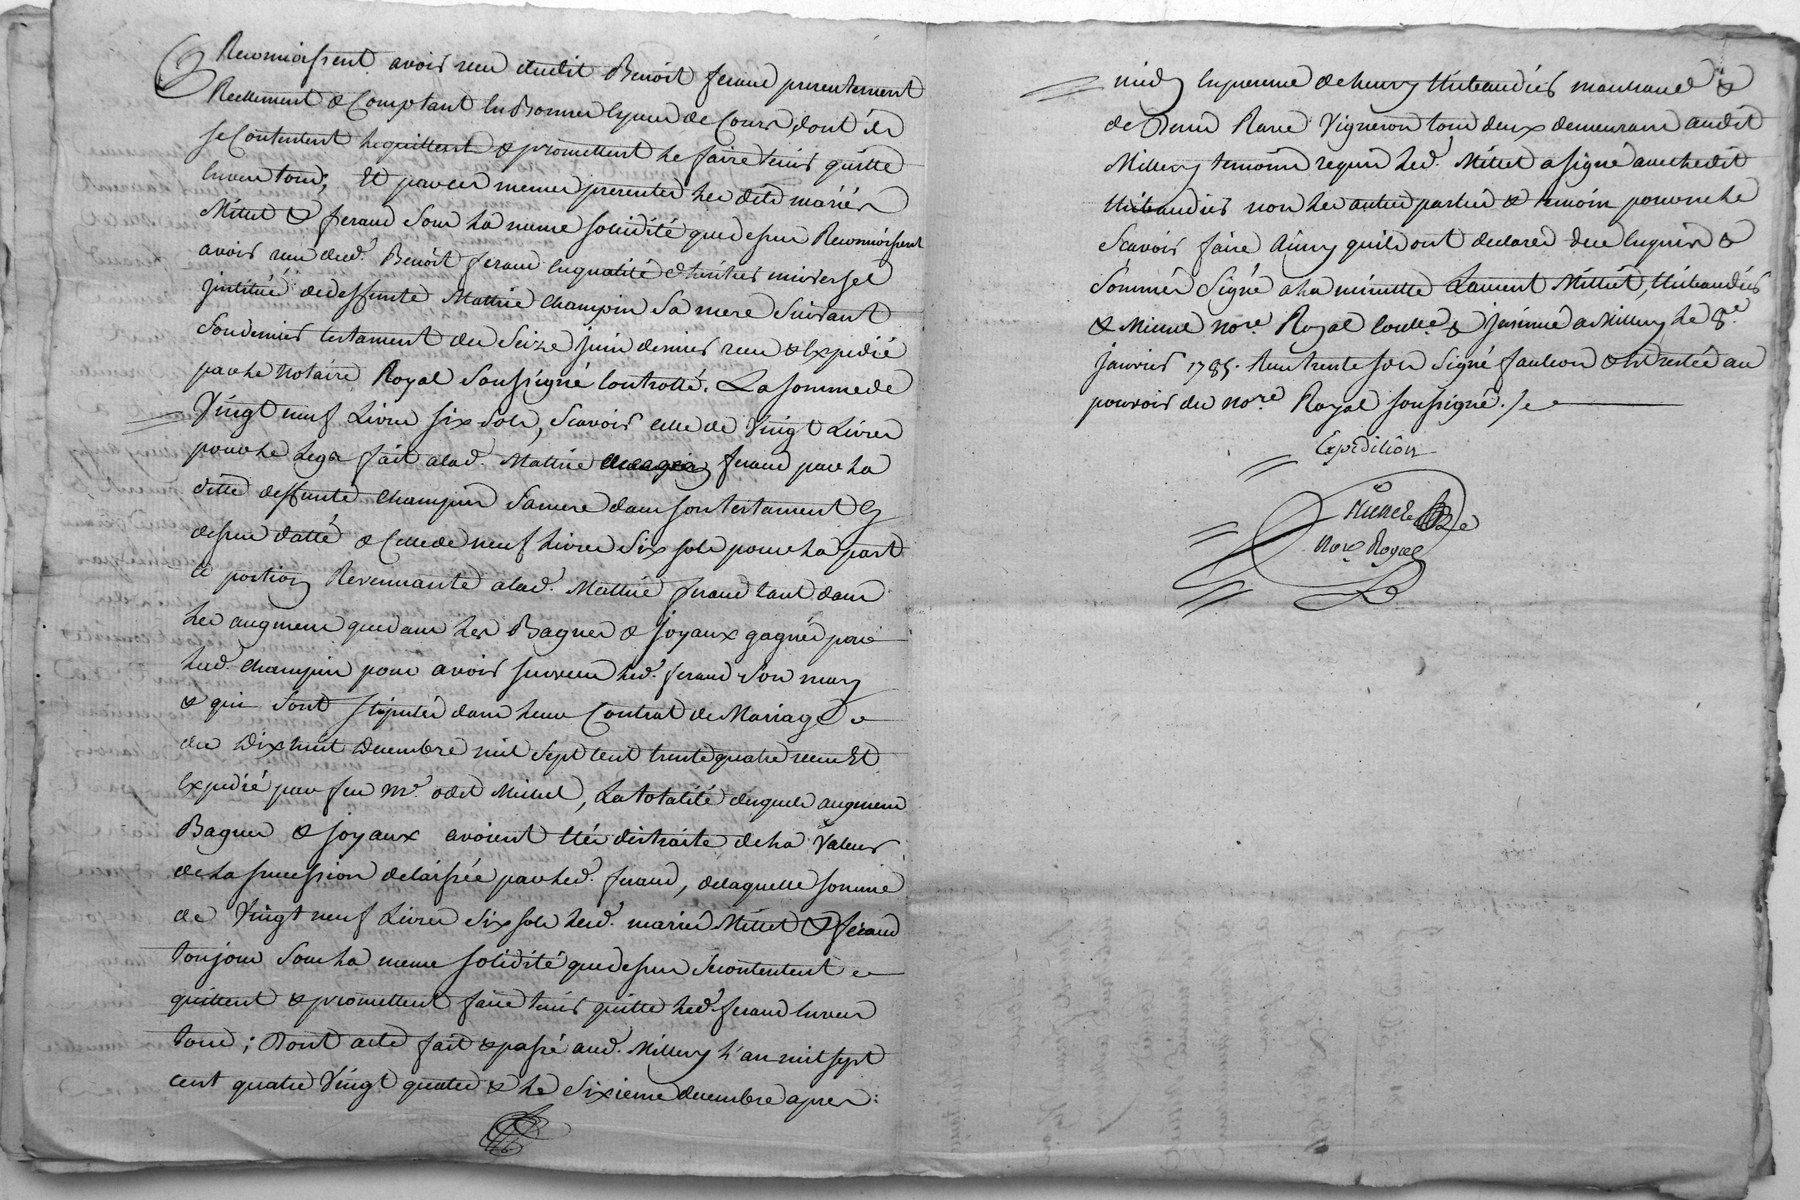 Reconnoissent avoir reçu dudit Benoit feraud presentement
Reellement & Comptant En Bonnes Especes de Cours, dont ils
se Contentent le quittent & promettent le faire tenir quitte
Envers tous; Et par ces memes presentes les dits mariés
Mittet & feraud Sous La meme solidité que dessus Reconnoissent
avoir reçu dud.t Benoit feraud En qualité d'heritier universel
institué de deffunte Mathie Champin Sa mere Suivant
Son dernier testament du Seize juin dernier reçu & Expedié
par le Notaire Royal Soussigné Controllé. La somme de
Vingt neuf Livres six sols, Scavoir celle de Vingt Livres
pour le Legs fait a lad.e Mathie feraud par La
ditte deffunte Champin Sa mere dans son testament
dessus datté & Celle de neuf Livres Six sols pour La part
& portion Revennante a lad.e Mathie feraud tant dans
Les augmens que dans Les Bagues & joyaux gagnés par
Lad.e Champin pour avoir survecu led.t feraud Son mary
& qui Sont stipulés dans leur Contrat de Mariage
du Dix huit Decembre mil Sept Cent trente quatre reçu Et
Expedié par feu M.e odet Michel, La totalité desquels augmens
Bagues & joyaux avoient Eté distraite de La Valeur
de La succession delaissée par led.t feraud, de laquelle somme
de Vingt neuf Livres Six sols lesd.s mariés Mittet & feraud
toujours Sous La meme solidité que dessus Se contentent
quittent & promettent faire tenir quitte led.t feraud Envers
tous; Dont acte fait & passé aud.t Millery L'an mil sept
cent quatre Vingt quatre & le Sixieme decembre apres
midy En presence de henry thibaudier marchand &
de Denis Rave Vigneron tous deux demeurans audit
Millery temoins requis led.t Mittet a signé avec ledit
thibaudier non les autres parties & temoin pour ne le
Scavoir faire Ainsy qu'ils ont declaré de ce Enquis &
Sommés Signé a la minutte Laurent Mittet, thibaudier
& Michel no.re Royal Con.llé & jnsinué a Millery le 8.e
janvier 1785. Reçu trente sols Signé faulcon & Est restée au
pouvoir du no.re Royal soussigné.
Expédition
Michel
No.re Royal